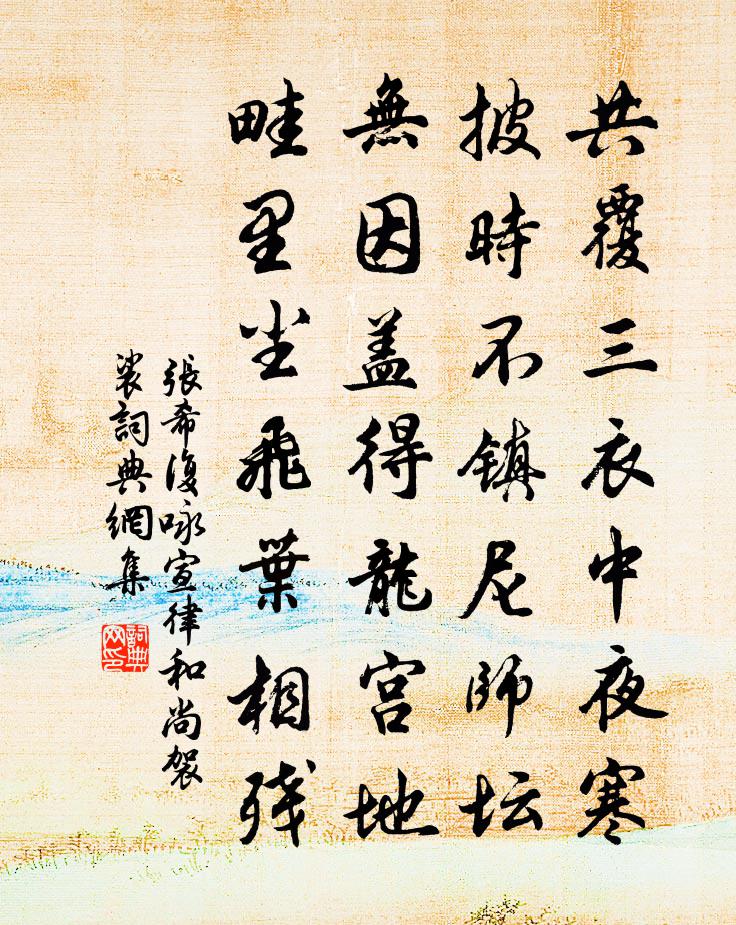 共覆三衣中夜寒
披時不镇尼師坛
無因盖得龍宫地
畦里尘飛葉相残
張希復咏宣律和尚袈
裟詞典網集
詞典
网印